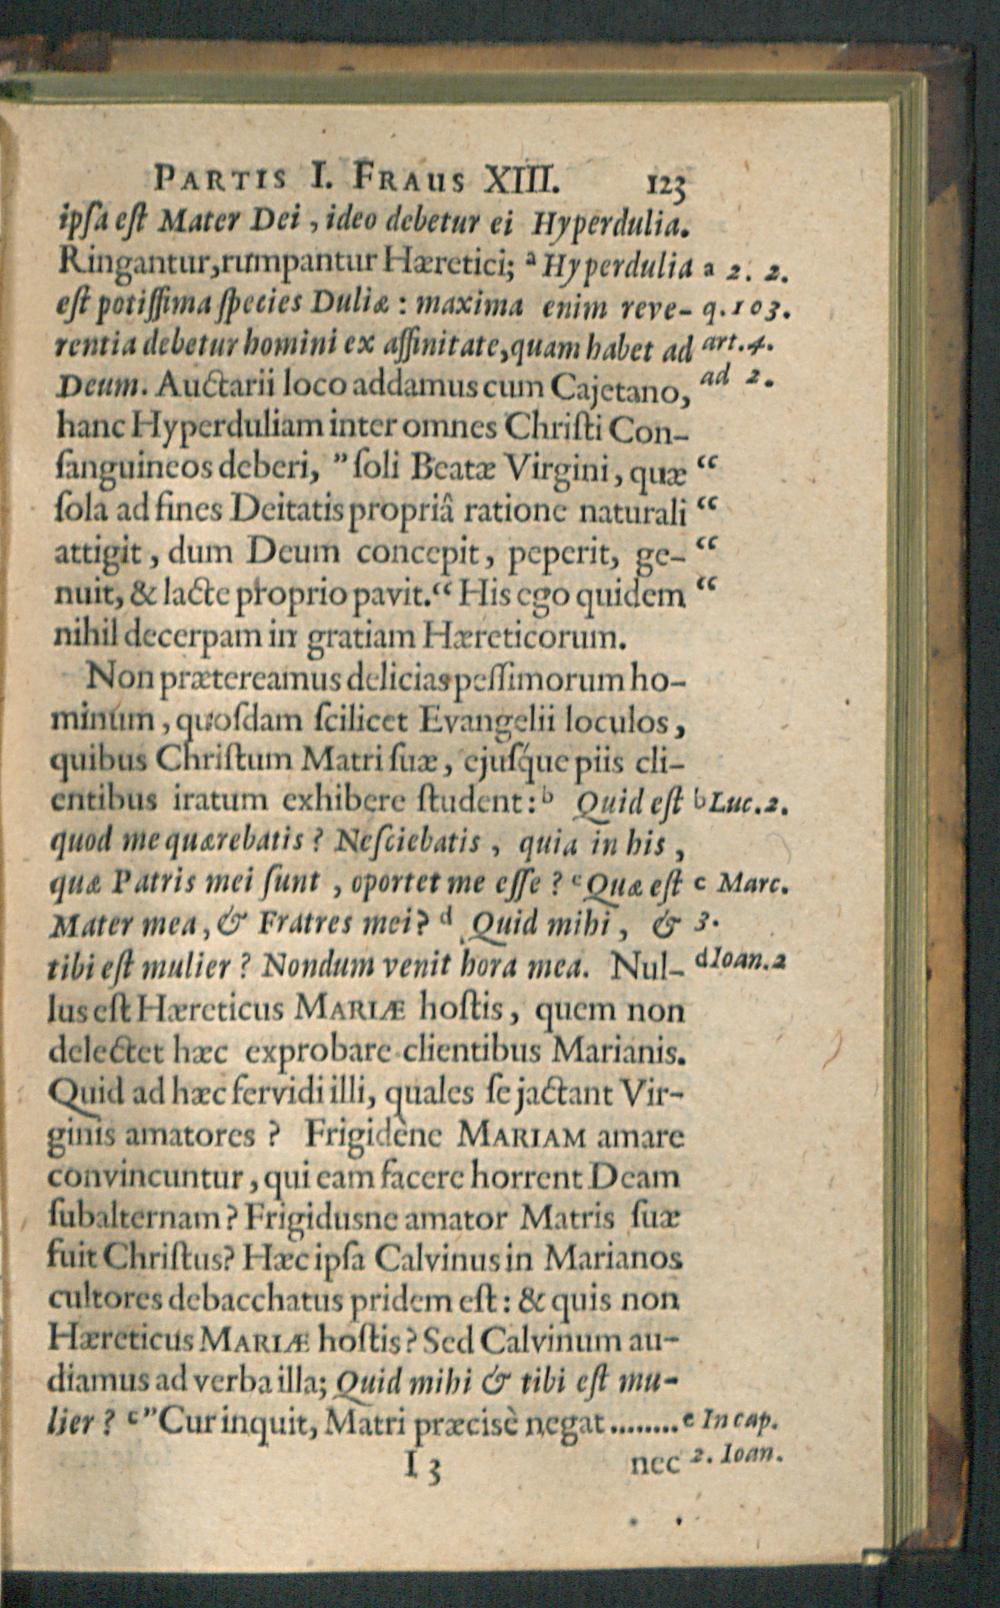 PARTIS I. FRAUS XIII. 123
ipſa eſt Mater Dei, ideo debetur ei Hyperdulia.
Ringantur, rumpantur Hæretici; ª Hyperdulia a 2. 2.
eſt potiſſima ſpecies Duliæ: maxima enim reve- q. 103.
rentia debetur homini ex affinitate, quam habet ad art. 4.
Deum. Auctarii loco addamus cum Cajetano, ad 2.
hanc Hyperduliam inter omnes Chriſti Con-
ſanguineos deberi, ” ſoli Beatæ Virgini, quæ “
ſola ad fines Deitatis propriâ ratione naturali “
attigit, dum Deum concepit, peperit, ge- “
nuit, & lacte proprio pavit.“ His ego quidem “
nihil decerpam in gratiam Hæreticorum.
Non prætereamus delicias peſſimorum ho-
minum, quoſdam ſcilicet Evangelii loculos,
quibus Chriſtum Matri ſuæ, ejuſq́ue piis cli-
entibus iratum exhibere ſtudent: ᵇ Quid eſt b Luc. 2.
quod me quærebatis? Neſciebatis, quia in his,
quæ Patris mei ſunt, oportet me eſſe? ᶜ Quæ eſt c Marc.
Mater mea, & Fratres mei? ᵈ Quid mihi, & 3.
tibi eſt mulier? Nondum venit hora mea. Nul- d Ioan. 2
lus eſt Hæreticus MARIÆ hoſtis, quem non
delectet hæc exprobare clientibus Marianis.
Quid ad hæc fervidi illi, quales ſe jactant Vir-
ginis amatores? Frigidène MARIAM amare
convincuntur, qui eam facere horrent Deam
ſubalternam? Frigidusne amator Matris ſuæ
fuit Chriſtus? Hæc ipſa Calvinus in Marianos
cultores debacchatus pridem eſt: & quis non
Hæreticus MARIÆ hoſtis? Sed Calvinum au-
diamus ad verba illa; Quid mihi & tibi eſt mu-
lier? ᵉ ” Cur inquit, Matri præcisè negat ........ e In cap.
I 3 nec 2. Ioan.